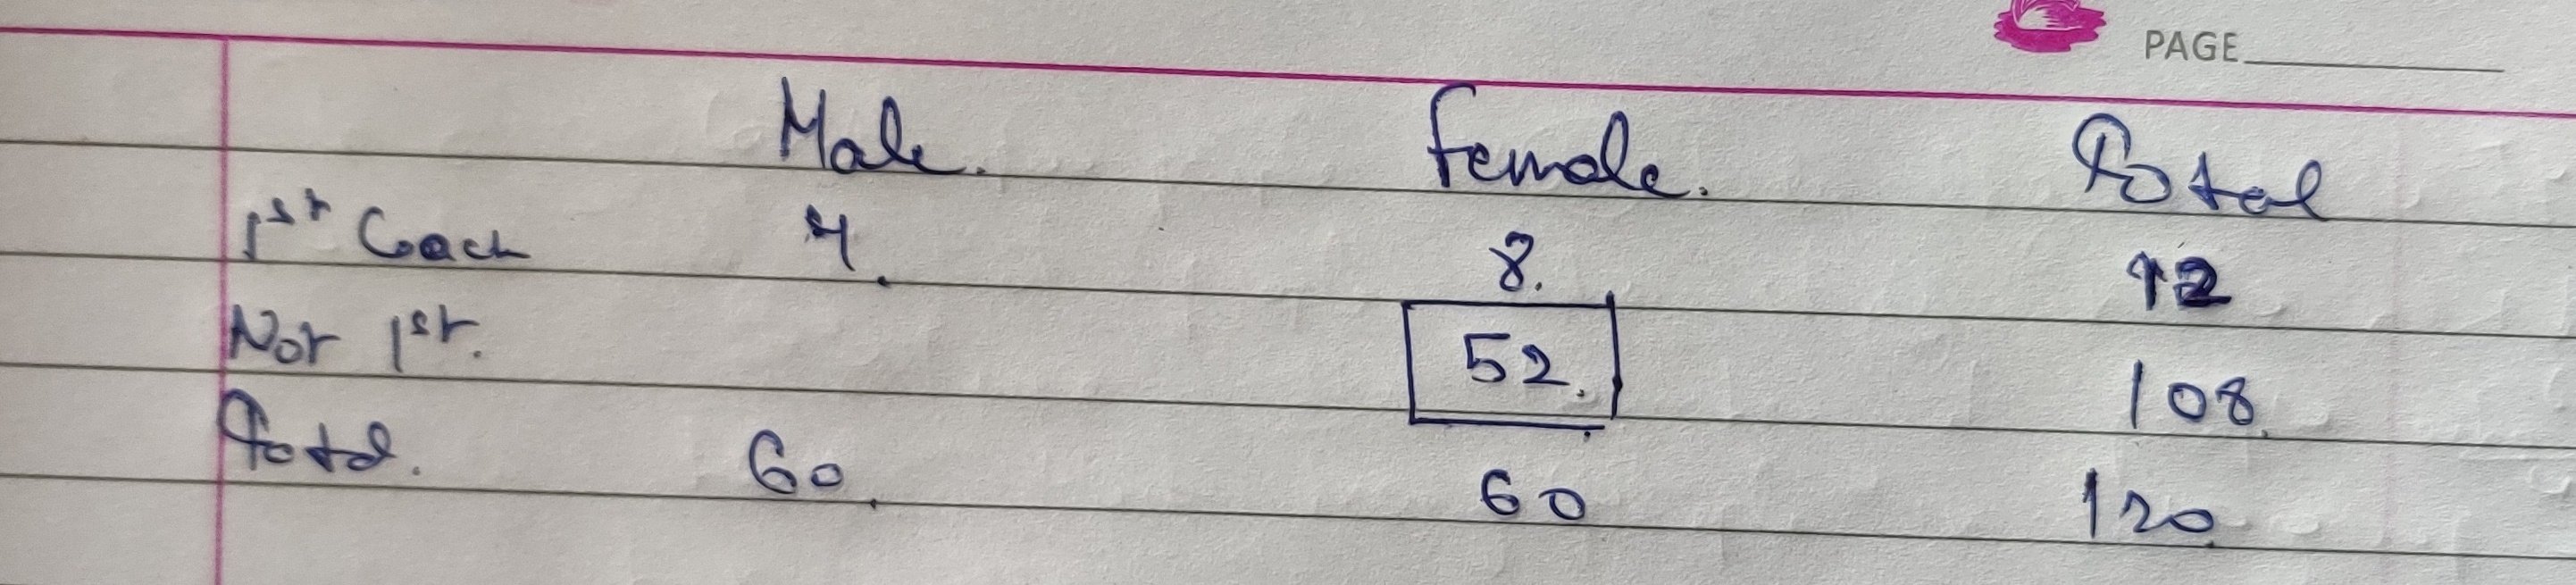 PAGE
Male. Female. Total
1st Coach 4. 8. 12
Not 1st. 52. 108.
Total. 60. 60 120.